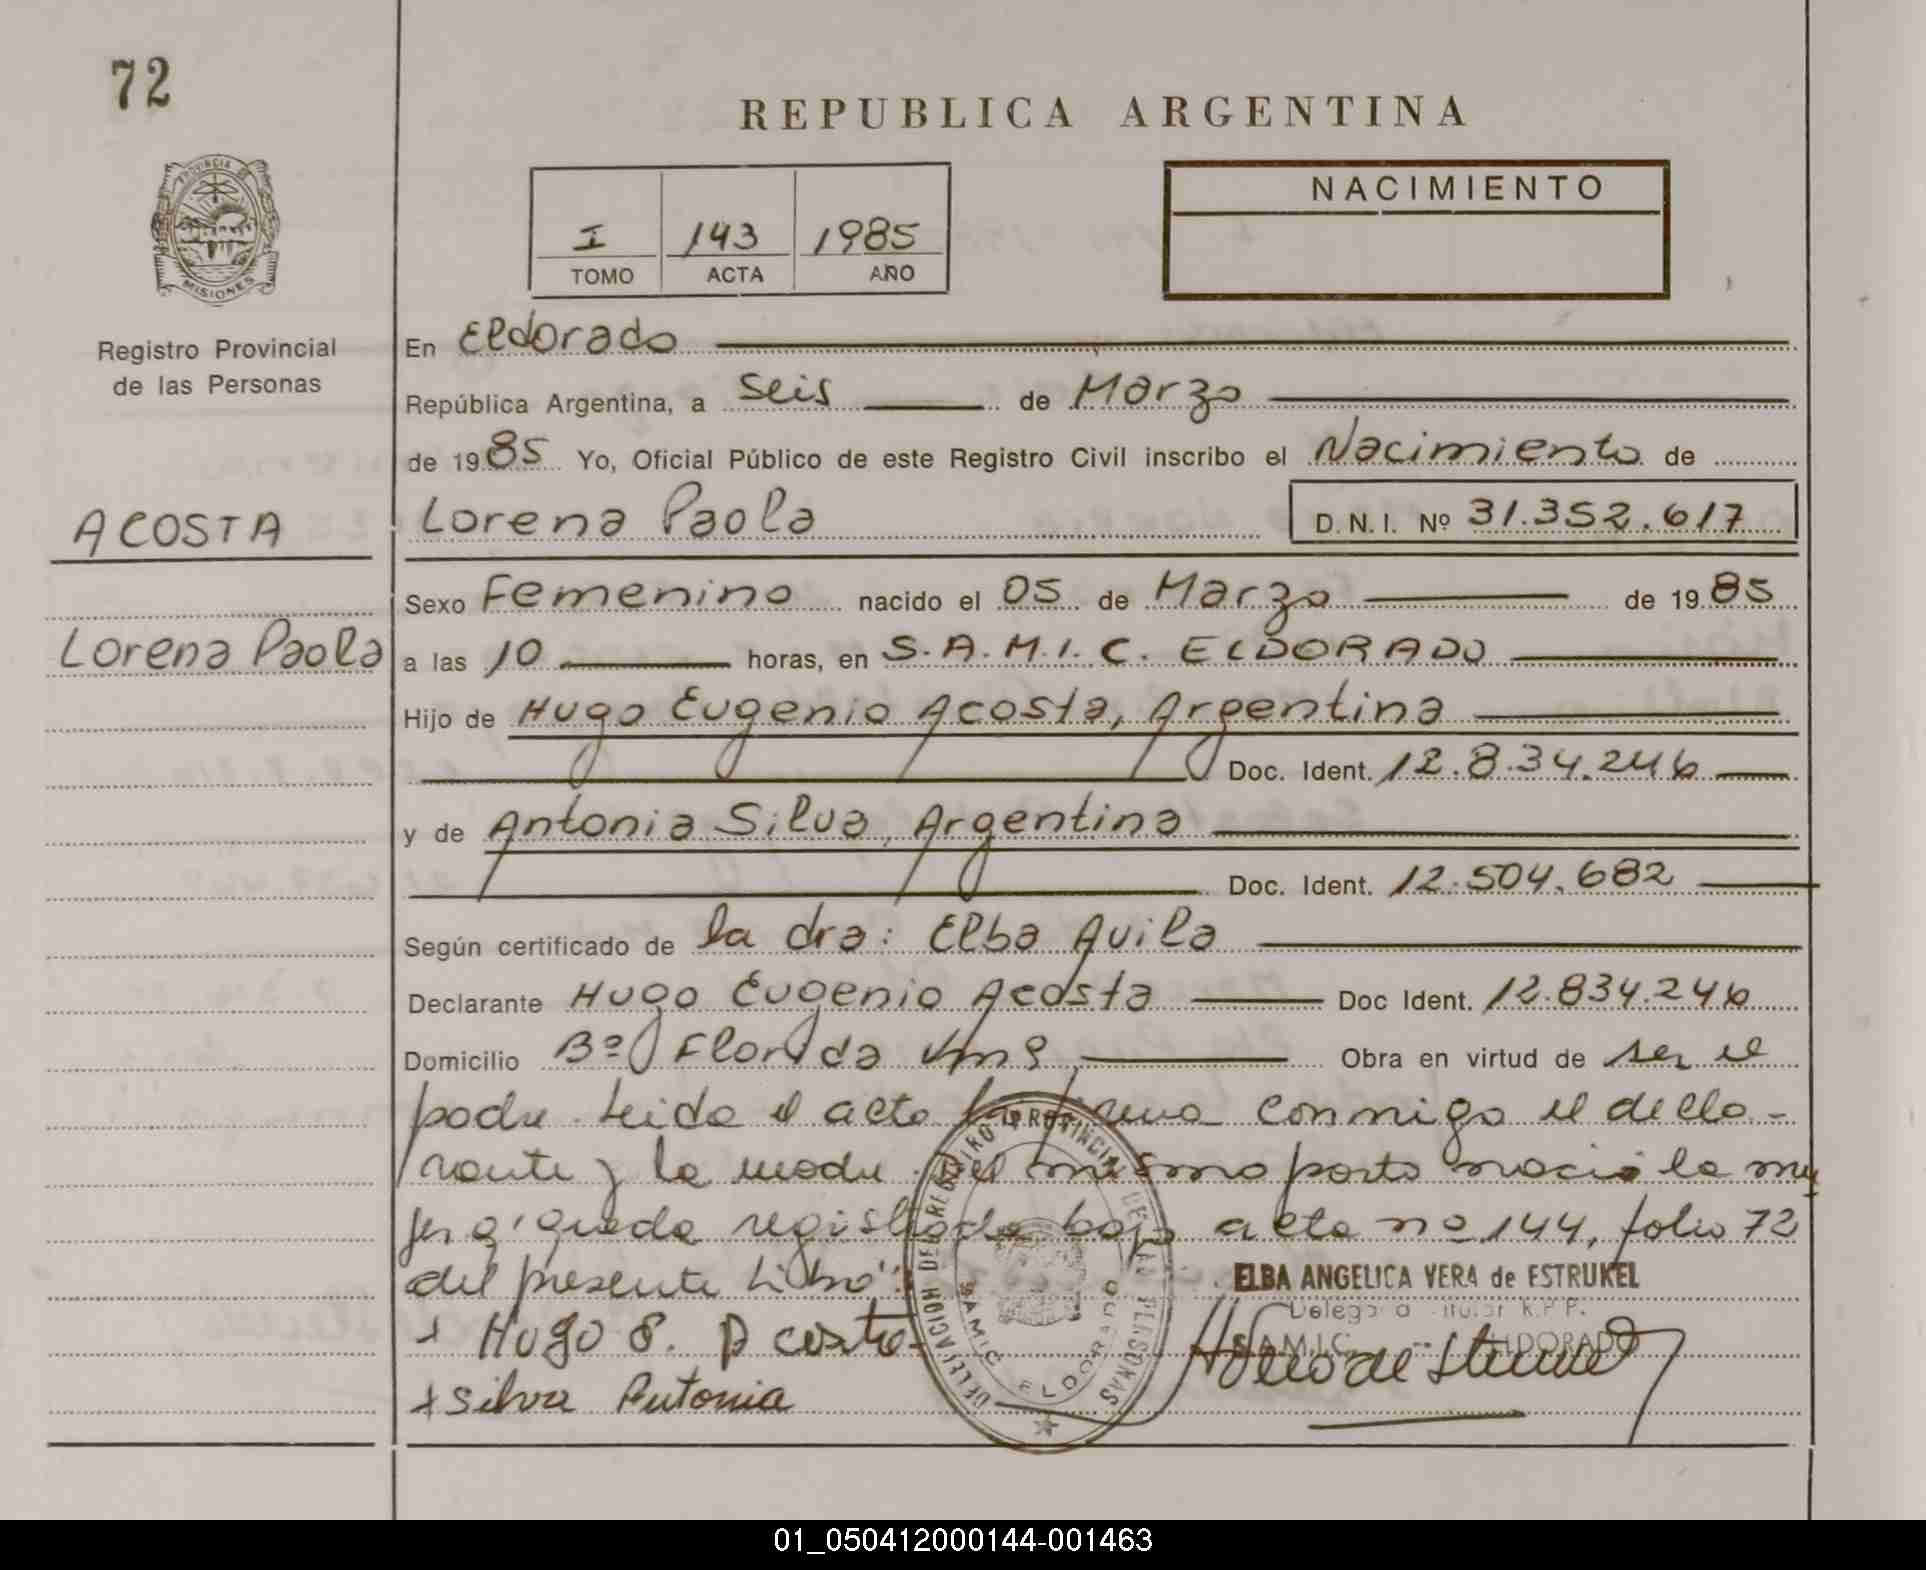 72
REPUBLICA ARGENTINA
PROVINCIA DE
MISIONES
Registro Provincial
de las Personas
I 143 1985
TOMO ACTA AÑO
NACIMIENTO
En Eldorado
República Argentina, a seis de Marzo
de 1985 Yo, Oficial Público de este Registro Civil inscribo el Nacimiento de
ACOSTA
Lorena Paola
D.N.I. Nº 31.352.617
Sexo Femenino nacido el 05 de Marzo de 1985
Lorena Paola
a las 10 horas, en S.A.M.I.C. ELDORADO
Hijo de Hugo Eugenio Acosta, Argentina
Doc. Ident. 12.834.246
y de Antonia Silva, Argentina
Doc. Ident. 12.504.682
Según certificado de la dra: Elba Avila
Declarante Hugo Eugenio Acosta Doc Ident. 12.834.246
Domicilio Bº Florida Obra en virtud de ser el
padre. Leida el acta la firma conmigo el decla-
rante y la madre. Del mismo parto nació la mu
jer q' queda registrada bajo acta nº 144, folio 72
del presente Libro":
x Hugo E. Acosta
x Silva Antonia
DELEGACION DEL REGISTRO PROVINCIAL DE LAS PERSONAS
SAMIC ELDORADO
ELBA ANGELICA VERA de ESTRUKEL
Delegada Titular R.P.P.
S.A.M.I.C. -- ELDORADO
01_050412000144-001463